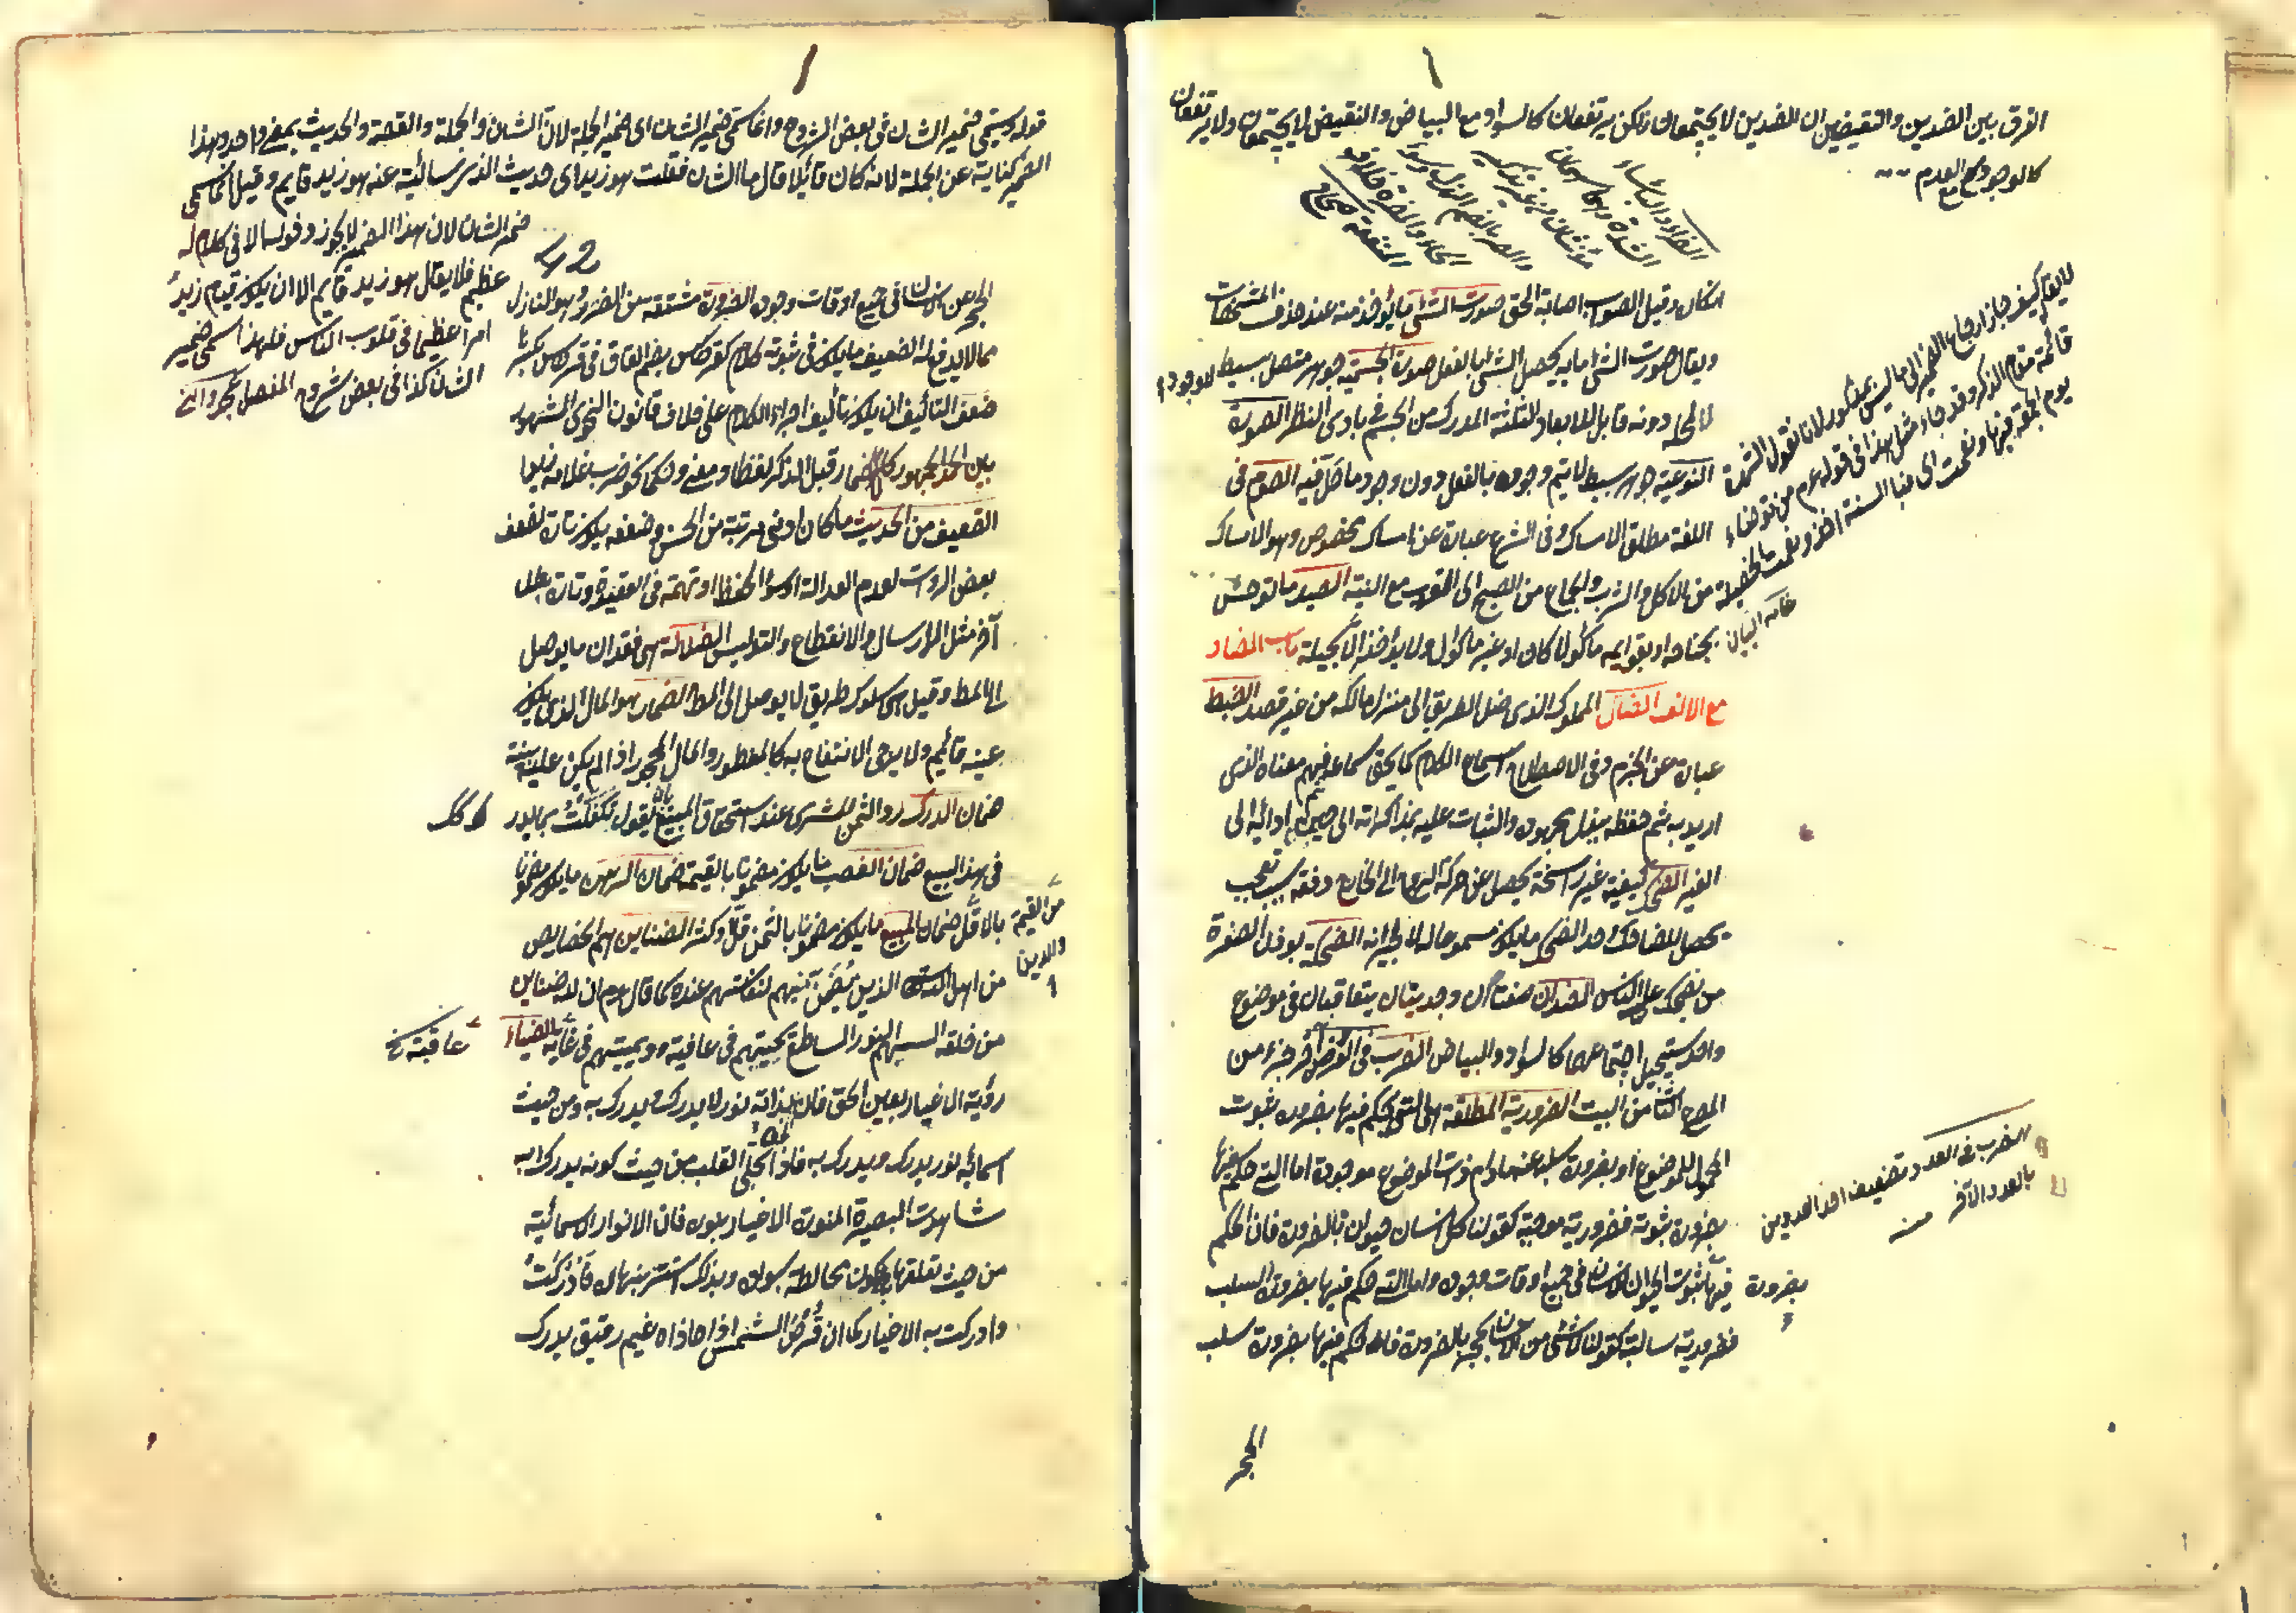 الفرق بين الضدين والنقيضين ان الضدين لا يجتمعان ولكن يرتفعان كالسواد مع البياض والنقيضين لا يجتمعان ولا يرتفعان
كالوجود مع العدم
الضراء والبأساء
الشدة وهما اسمان
مؤنثان من غير تذكير
والضر بالضم الهزال وسوء
الحال والمضرة خلاف
المنفعة صحاح
وقيل الصواب اصابة الحق صورت الشئ ما يؤخذ منه عند حذف المشخصات
ويقال صورت الشئ ما به يحصل الشئ بالفعل صورة الجسمية جوهر متصل بسيط لا وجود
لمحله دونه قابل للابعاد الثلثة المدركة من الجسم في بادى النظر الصورة
النوعية جوهر بسيط لا يتم وجوده بالفعل دون وجود ما حل فيه الصوم فى
اللغة مطلق الامساك وفى الشرع عبارة عن امساك مخصوص وهو الامساك
من الاكل والشرب والجماع من الصبح الى المغرب مع النية الصيد ما توحش
بجناحه او بقوايمه مأكولا كان او غير مأكول ولا يؤخذ الا بحيلة باب الضاد
مع الالف الضال المملوك الذى ضل الطريق الى منزل مالكه من غير قصد الضبط
عبارة عن الحزم وفى الاصطلاح اسماع الكلام كما يحق سماعه ثم فهم معناه الذى
اريد به ثم حفظه ببذل مجهوده والثبات عليه بمذاكرته الى حين ادائه الى
الغير الضحك كيفية غير راسخة يحصل عن حركة الروح الى الخارج دفعة بسبب تعجب
يحصل للضاحك وحد الضحك ما يكون مسموعا له لا لجيرانه الضحكة بوزن الصفرة
من يضحك على الناس الضدان صفتان وجوديتان يتعاقبان فى موضوع
واحد يستحيل اجتماعهما كالسواد والبياض الضرب فى العروض آخر جزء من
المصراع الثانى من البيت الضرورية المطلقة هى التى يحكم فيها بضرورة ثبوت
المحمول للموضوع او بضرورة سلبه عنه ما دام ذات الموضوع موجودة اما التى حكم فيها
بضرورة ثبوته فضرورية موجبة كقولنا كل انسان حيوان بالضرورة فان الحكم
فيها بضرورة ثبوت الحيوان للانسان فى جميع اوقات وجوده واما التى حكم فيها بضرورة السلب
فضرورية سالبة كقولنا لا شئ من الانسان بحجر بالضرورة فان الحكم فيها بضرورة سلب
الحجر
لا يقال كيف جاز ارجاع الضمير الى ما ليس بمذكور لانا نقول الشهرة
قائمة مقام الذكر وقد جاء مثل هذا فى قوله عم من توضاء
يوم الجمعة فبها ونعمت اى فبا السنة اخذ ونعمت الخصلة
غاية البيان
الضرب فى العدد تضعيف احد العددين
بالعدد الآخر منه
قوله ويسمى ضمير الشان فى بعض الشروح وانما سمى ضمير الشان اى ضمير الجملة لان الشان والجملة والقصة والحديث بمعنى واحد وهذا
الضمير كناية عن الجملة لانه كان قائلا قال ما الشان فقلت هو زيد اى حديث الذى سالتنى عنه هو زيد قايم وقيل انما سمى
ضمير الشان لان هذا الضمير لا يجوز دخوله الا فى كلام له
عظيم فلا يقال هو زيد قايم الا ان يكون قيام زيد
امرا عظيما فى قلوب الناس فلهذا سمى ضمير
الشان كذا فى بعض شروح المفصل
الحجر عن الانسان فى جميع اوقات وجوده الضرورة مشتقة من الضرر وهو النازل
مما لا يدفع له الضعيف ما يكون فى ثبوته كلام كقرطاس بضم القاف فى قرطاس بكسرها
ضعف التأليف ان يكون تأليف اجزاء الكلام على خلاف قانون النحوى المشهور
بين الجمهور كالاضمار قبل الذكر لفظا ومعنى وحكما نحو ضرب غلامه زيدا
الضعيف من الحديث ما كان ادنى مرتبة من الحسن وضعفه يكون تارة لضعف
بعض الروات لعدم العدالة او سوء الحفظ او تهمة فى العقيدة وتارة بعلل
آخر مثل الارسال والانقطاع والتدليس الضلالة هى فقدان ما يوصل
الى المط وقيل هى سلوك طريق لا يوصل الى المط الضمار هو المال الذى يكون
عينه قائم ولا يرجى الانتفاع به كالمغصوب والمال المجحود اذا لم يكن عليه بينة
ضمان الدرك رد الثمن للمشترى عند استحقاق المبيع بان يقول تكفلت بما يدركك
فى هذا البيع ضمان الغصب ما يكون مضمونا بالقيمة ضمان الرهن ما يكون مضمونا
بالاقل من القيمة والدين ضمان المبيع ما يكون مضمونا بالثمن قل او كثر الضنائن هم الخصايص
من اهل الله الذين يضن بهم لنفاستهم عنده كما قال عم ان لله ضناين
من خلقه البسهم النور الساطع يحييهم فى عافية ويميتهم فى عافية الضياء
رؤية الاغيار بعين الحق فان الحق بذاته نور لا يدرك ولا يدرك به ومن حيث
اسمائه نور يدرك ويدرك به فاذا تجلى القلب من حيث كونه يدرك به
شاهدت البصيرة المنورة الاغيار بنوره فان الانوار الاسمائية
من حيث تعلقها بالكون مخالطة بسواده وبذلك استتر انبهاره فادركت
وادركت به الاغيار كما ان قرص الشمس اذا حاذاه غيم رقيق يدرك
عاقبته نخ